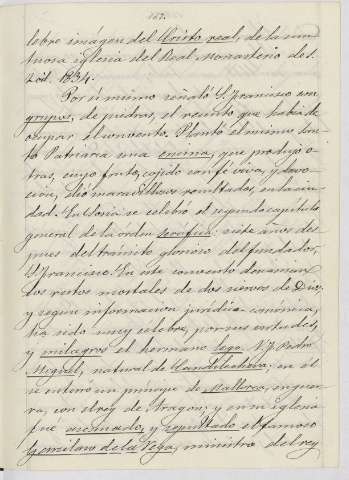 167.
lebre imágen del Cristo real, de la sun-
tuosa iglesia del Real Monasterio de S.
Zoil. 1834.
Por sí mismo señaló S. Francisco sin
grupos, de piedras, el recinto que habia de
ocupar el convento. Planto el mismo San-
to Patriarca una encina, que produjo o-
tras, cuyo fruto, cojido con fé viva, y devo-
cion, dió maravillosos resultados, en la ciu-
dad. En Soria se celebró el segundo capítulo
general de la orden seráfica: siete años des-
pues del tránsito glorioso del fundador,
S. Francisco. En este convento descansan
los restos mortales de dos siervos de Dios,
y segun informacion jurídica-canónica,
ha sido muy célebre, por sus virtudes,
y milagros el hermano lego Fr. Pedro
Miguel, natural de Candilichera: en él
se enterró un príncipe de Mallorca, en guer-
ra, con el rey de Aragon; y en su iglesia
fue asesinado, y sepultado el famoso
Garcilaso de la Vega, ministro del rey